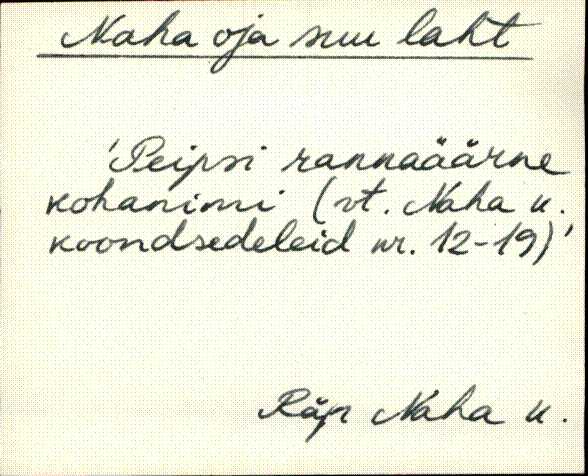 Naha oja suu laht
'Peipsi rannaäärne
kohanimi (vt. Naha k.
koondsedeleid nr. 12-19)'
Räp Naha k.